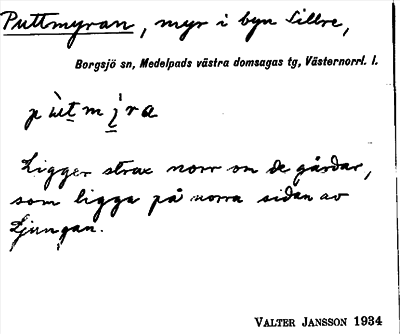 Puttmyran, myr i byn Sillre,
Borgsjö sn, Medelpads västra domsagas tg, Västernorrl. l.
Ligger strax norr om de gårdar,
som ligga på norra sidan av
Ljungan.
VALTER JANSSON 1934